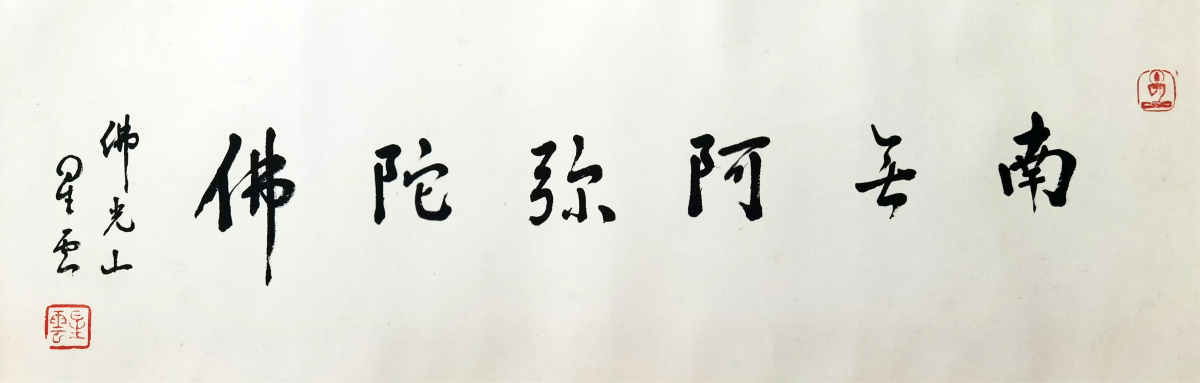 南無阿弥陀佛
佛光山
星雲
星雲